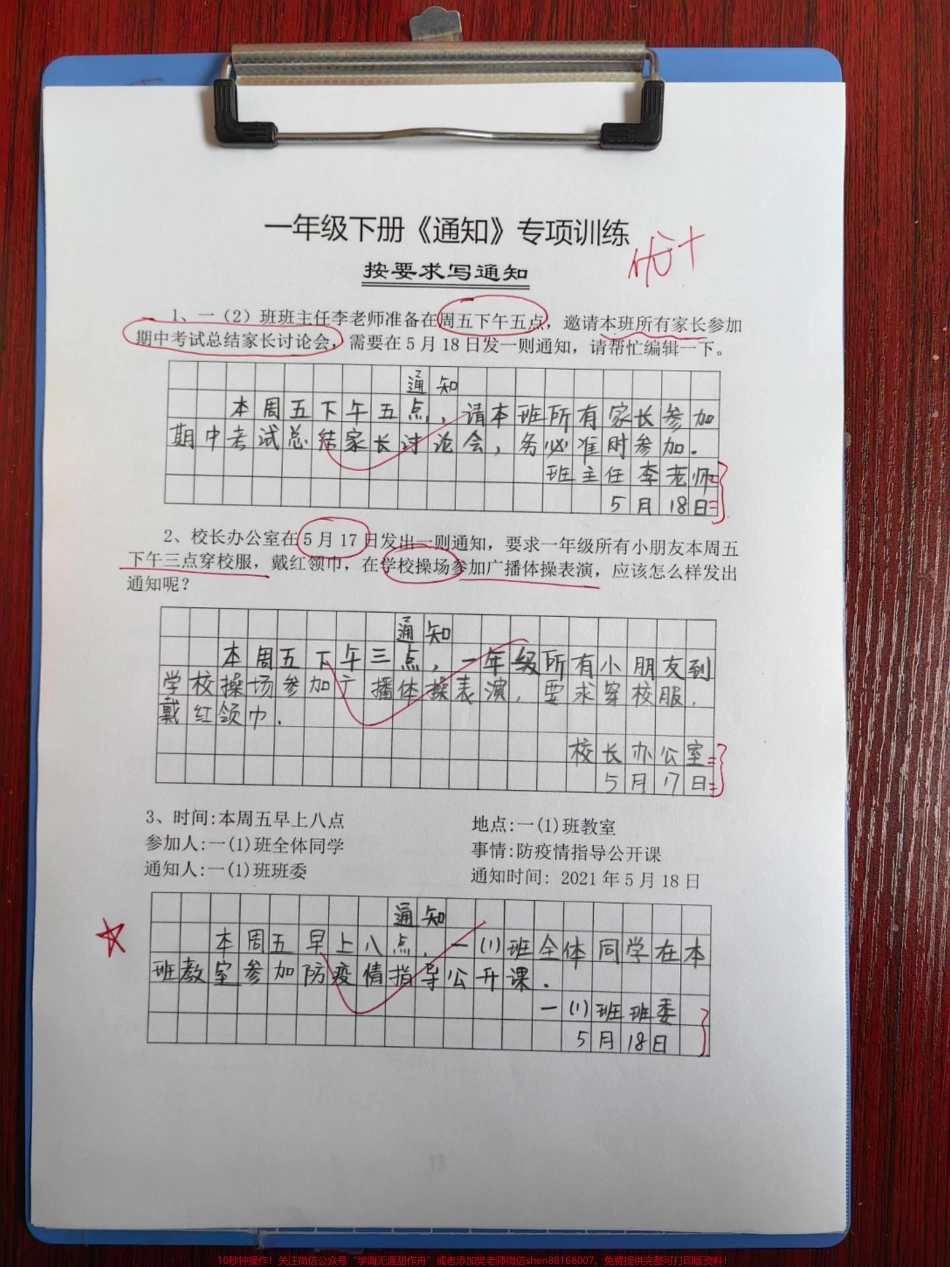 一年级下册《通知》专项训练
优+
按要求写通知
1、一（2）班班主任李老师准备在周五下午五点，邀请本班所有家长参加
期中考试总结家长讨论会，需要在5月18日发一则通知，请帮忙编辑一下。
通知
本周五下午五点，请本班所有家长参加
期中考试总结家长讨论会，务必准时参加.
班主任李老师
5月18日
2、校长办公室在5月17日发出一则通知，要求一年级所有小朋友本周五
下午三点穿校服，戴红领巾，在学校操场参加广播体操表演，应该怎么样发出
通知呢？
通知
本周五下午三点，一年级所有小朋友到
学校操场参加广播体操表演，要求穿校服，
戴红领巾.
校长办公室
5月17日
3、时间:本周五早上八点 地点:一(1)班教室
参加人:一(1)班全体同学 事情:防疫情指导公开课
通知人:一(1)班班委 通知时间: 2021年5月18日
通知
本周五早上八点，一(1)班全体同学在本
班教室参加防疫情指导公开课.
一(1)班班委
5月18日
13
10秒钟操作！关注微信公众号“学海无涯甜作舟”或者添加樊老师微信shen88168007，免费提供完整可打印版资料！